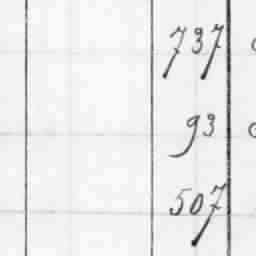 737
93
507